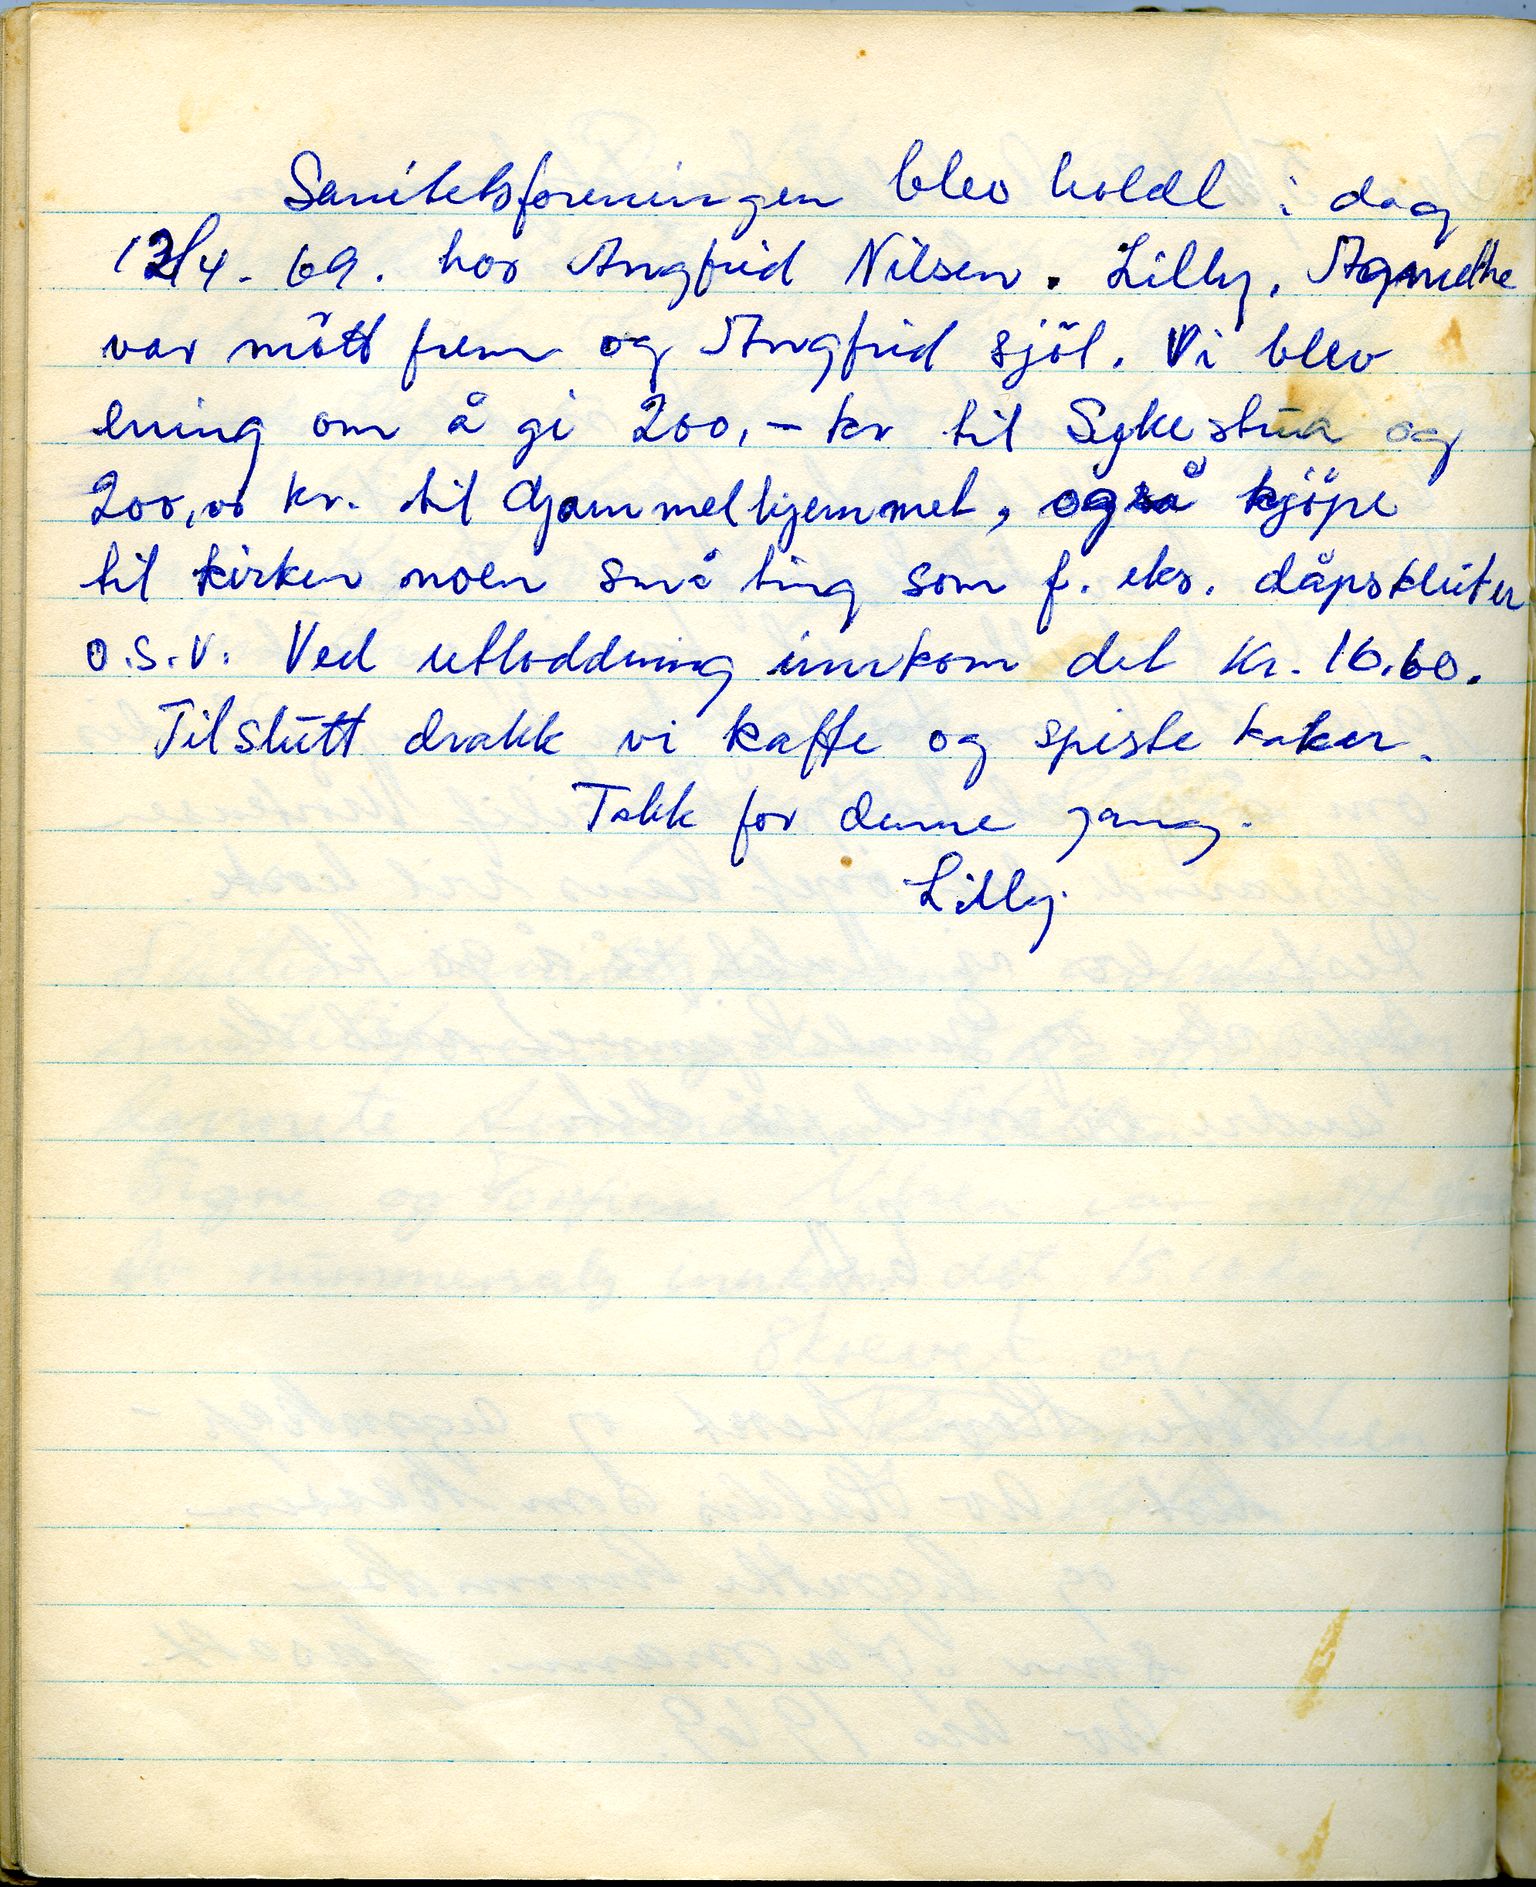 Sanitetsforeningen blev holdt i dag
12/4. 69. hos Angfrid Nilsen. Lilly, Agnethe
var mött frem og Angfrid sjöl. Vi blev
ening om å gi 200,- kr til Sykestua og
200,00 kr. til Gammelhjemmet, også kjöpe
til kirken noen små ting som f. eks. dåpskluter
o.s.v. Ved utloddning innkom det Kr. 16.60.
Tilslutt drakk vi kaffe og spiste kaker.
Takk for denne gang.
Lilly